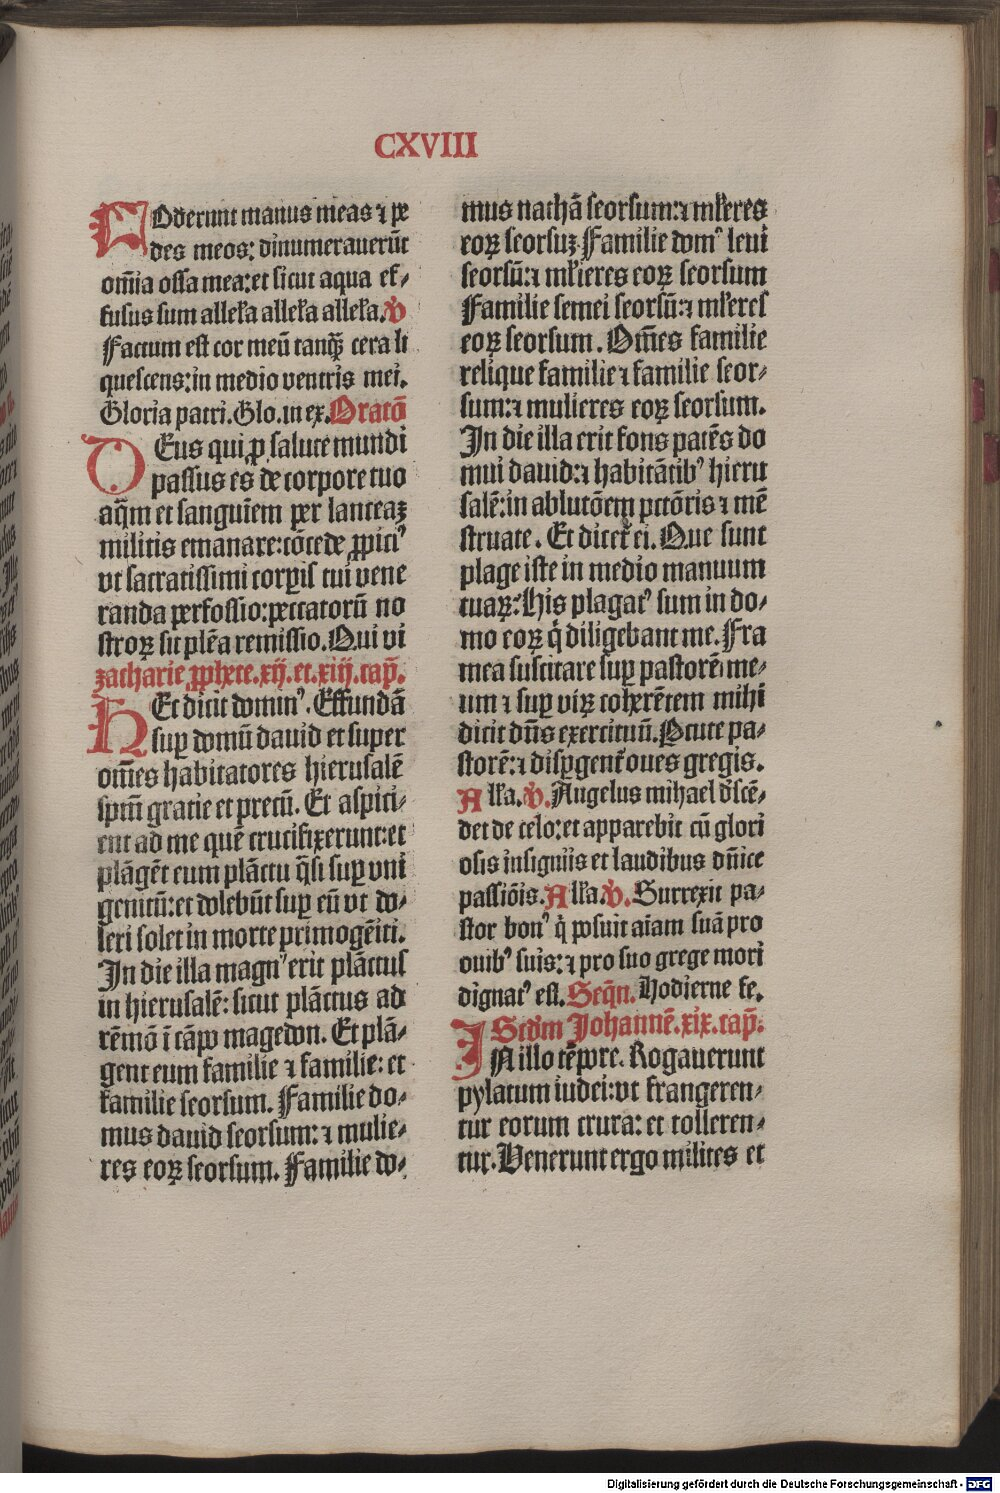 CXVIII
FOderunt manus meas ⁊ pe
des meos: dinumerauerūt
om̄ia ossa mea: et sicut aqua ef⸗
fusus sum alleľa alleľa alleľa. ℣
Factum est cor meū tanq̄ꝫ cera li
quescens: in medio ventris mei.
Gloria patri. Glo. in ex. Oratō
DEus qui ꝓ salute mundi
passus es de corpore tuo
aq̄m et sanguīem per lanceaꝫ
militis emanare: cōcede ꝓpiciꝰ
vt sacratissimi corpis tui vene
randa perfossio: peccatorū no
stroꝝ sit plēa remissio. Qui vi
zacharie ꝓphete. xij. et. xiij. cap̄.
HEc dicit dominꝰ. Effundā
suꝑ domū dauid et super
om̄es habitatores hierusalē
sp̄m gratie et precū. Et aspici⸗
ent ad me quē crucifixerunt: et
plāgēt eum plāctu q̄si suꝑ vni
genitū: et dolebūt suꝑ eū vt do⸗
leri solet in morte primogēiti.
In die illa magnꝰ erit plāctus
in hierusalē: sicut plāctus ad
rēmō ī cāpo magedon. Et plā⸗
gent eum familie ⁊ familie: et
familie seorsum. Familie do⸗
mus dauid seorsum: ⁊ mulie⸗
res eoꝝ seorsum. Familie do⸗
mus nathā seorsum: ⁊ mľeres
eoꝝ seorsuꝫ Familie domꝰ leui
seorsū: ⁊ mľieres eoꝝ seorsum
Familie semei seorsū: ⁊ mľeres
eoꝝ seorsum. Om̄es familie
relique familie ⁊ familie seor⸗
sum: ⁊ mulieres eoꝝ seorsum.
In die illa erit fons patēs do
mui dauid: ⁊ habitātibꝰ hieru
salē: in ablutōem pctōris ⁊ mē
struate. Et dicet̄ ei. Que sunt
plage iste in medio manuum
tuaꝝ? His plagatꝰ sum in do⸗
mo eoꝝ q̇ diligebant me. Fra
mea suscitare suꝑ pastorē me⸗
um ⁊ suꝑ viꝝ coherētem mihi
dicit dn̄s exercituū. Pcute pa⸗
storē: ⁊ disꝑgent̄ oues gregis.
Alľa. ℣. Angelus mihael d̓scē⸗
det de celo: et apparebit cū glori
osis insigniis et laudibus dn̄ice
passiōis. Alľa. ℣. Surrexit pa⸗
stor bonꝰ q̇ posuit aīam suā pro
ouibꝰ suis: ⁊ pro suo grege mori
dignatꝰ est. Seq̄n. Hodierne fe.
Scd̓m Johannē. xix. cap̄.
IN illo tēpore. Rogauerunt
pylatum iudei: vt frangeren⸗
tur eorum crura: et tolleren⸗
tur. Venerunt ergo milites et
Digitalisierung gefördert durch die Deutsche Forschungsgemeinschaft - DFG